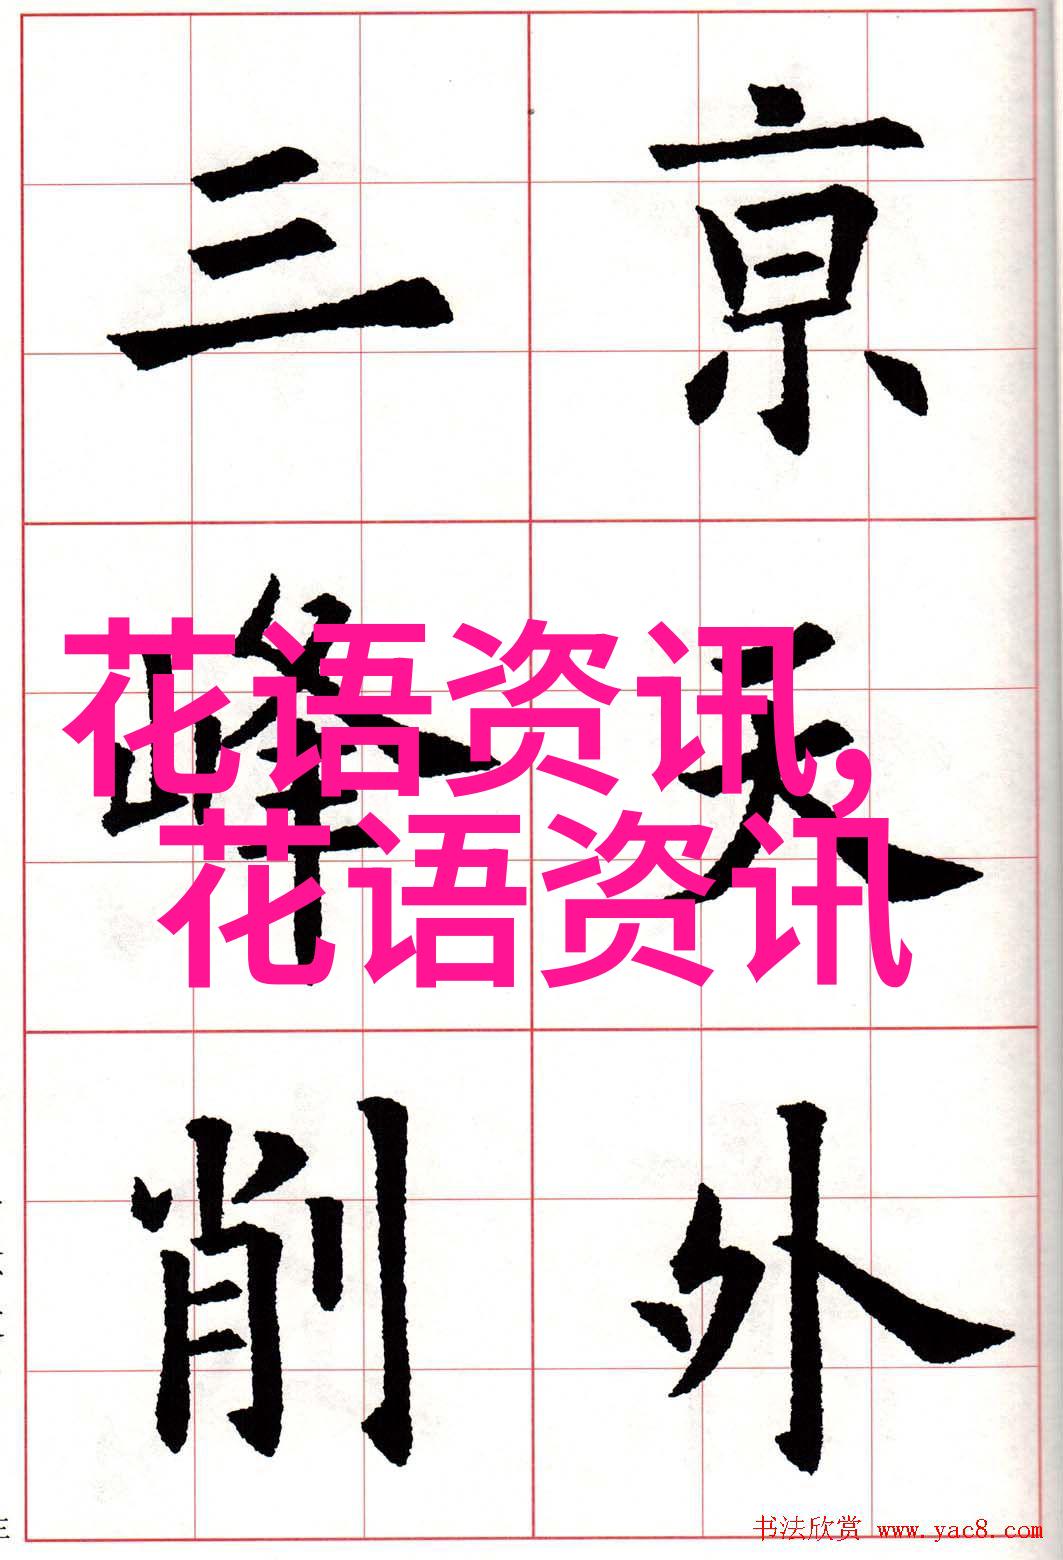 亰天外
三峰削
花语资讯,
花语资讯
书法欣赏 www.yac8.com